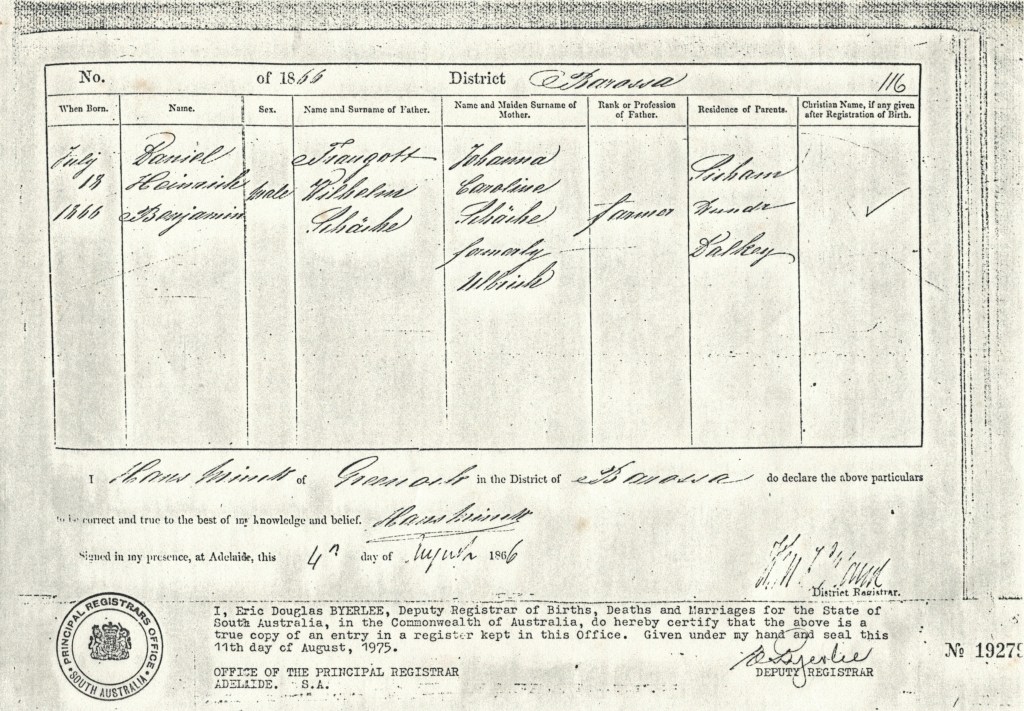 No. of 1866 District Barossa 116
When Born. Name. Sex. Name and Surname of Father. Name and Maiden Surname of Mother. Rank or Profession of Father. Residence of Parents. Christian Name, if any given after Registration of Birth.
July Daniel Traugott Johanna
18 Heinrich male Wilhelm Caroline
1866 Benjamin Schäche Schäche farmer
formerly Dalkey
Ulbrich
I Hans of Greenock in the District of Barossa do declare the above particulars
to be correct and true to the best of my knowledge and belief. Hans
Signed in my presence, at Adelaide, this 4 day of August 1866
District Registrar.
PRINCIPAL REGISTRARS OFFICE
SOUTH AUSTRALIA
I, Eric Douglas BYERLEE, Deputy Registrar of Births, Deaths and Marriages for the State of
South Australia, in the Commonwealth of Australia, do hereby certify that the above is a
true copy of an entry in a register kept in this Office. Given under my hand and seal this
11th day of August, 1975.
E Byerlee
OFFICE OF THE PRINCIPAL REGISTRAR DEPUTY REGISTRAR
ADELAIDE. S.A.
No 19279